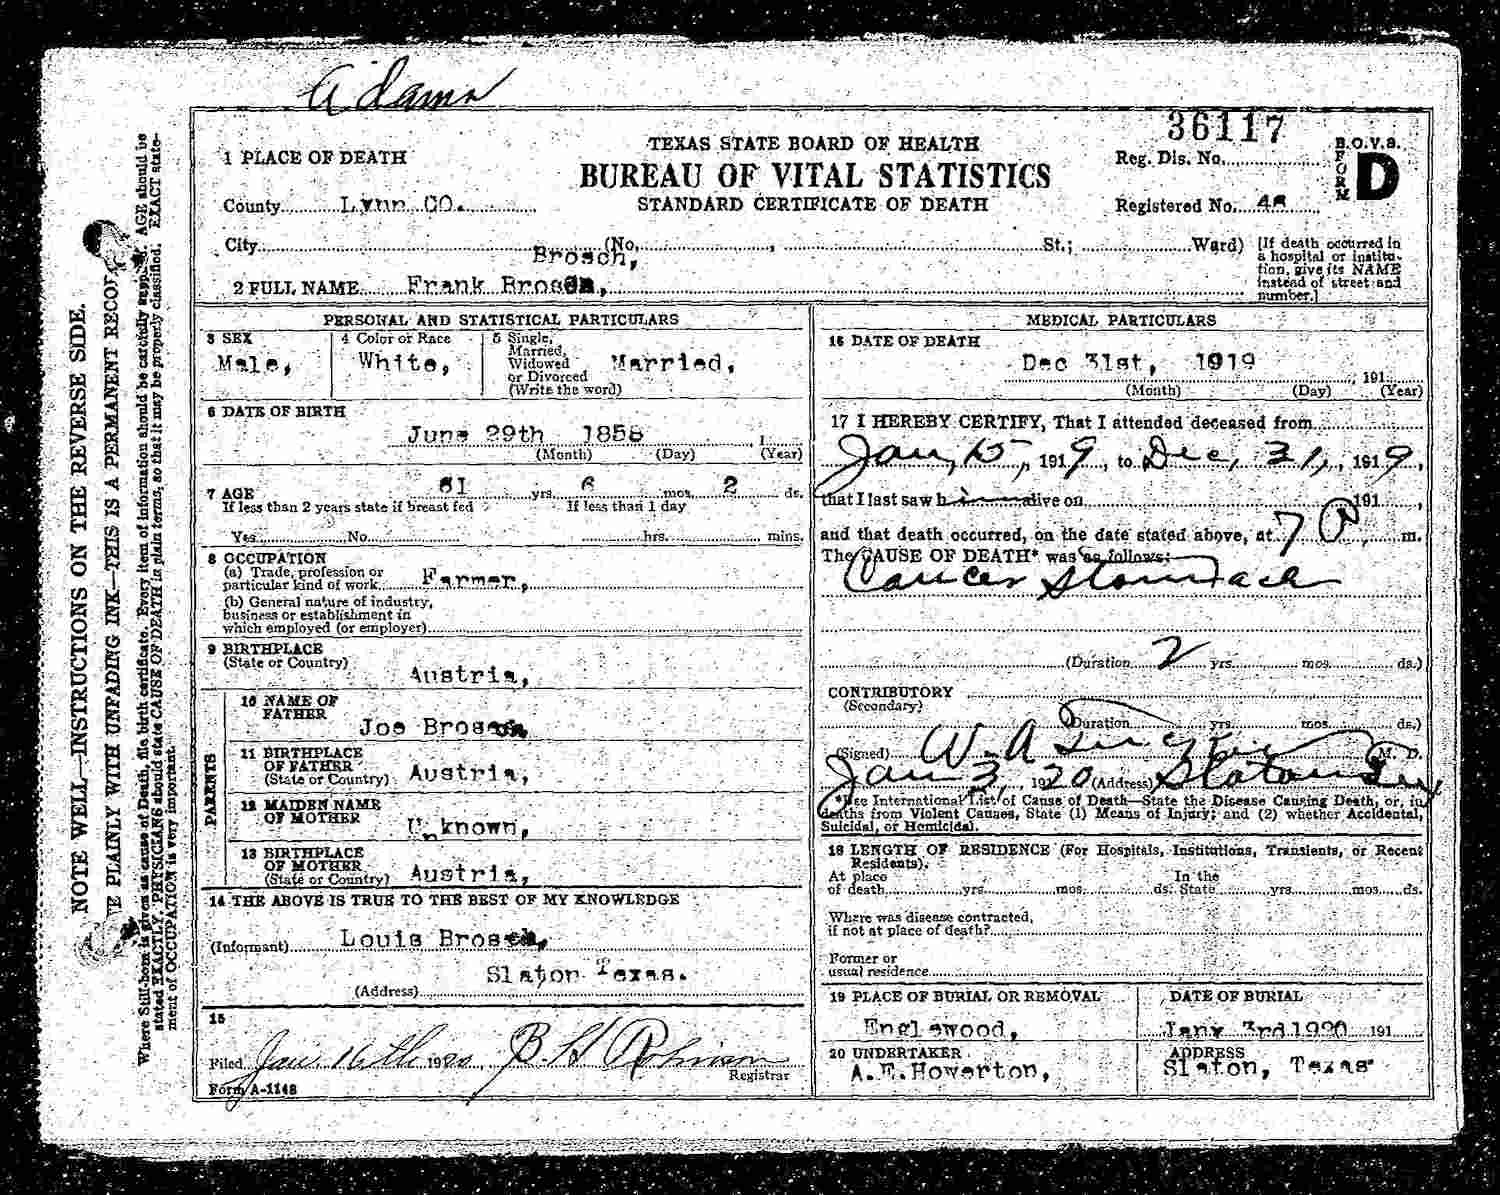 Adams
36117
TEXAS STATE BOARD OF HEALTH
BUREAU OF VITAL STATISTICS
STANDARD CERTIFICATE OF DEATH
B.O.V.S.
FORM D
Reg. Dis. No.
Registered No. 48
1 PLACE OF DEATH
County Lynn CO.
City (No. , St.; Ward)
[If death occurred in
a hospital or institu-
tion, give its NAME
instead of street and
number.]
Brosch,
2 FULL NAME Frank
PERSONAL AND STATISTICAL PARTICULARS
3 SEX
Male,
4 Color or Race
White,
5 Single,
Married,
Widowed
or Divorced
(Write the word)
Married,
6 DATE OF BIRTH
June 29th 1858 , 1
(Month) (Day) (Year)
7 AGE 61 yrs. 6 mos. 2 ds.
If less than 2 years state if breast fed If less than 1 day
Yes No hrs. mins.
8 OCCUPATION
(a) Trade, profession or
particular kind of work Farmer,
(b) General nature of industry,
business or establishment in
which employed (or employer)
9 BIRTHPLACE
(State or Country)
Austria,
PARENTS
10 NAME OF
FATHER
Joe
11 BIRTHPLACE
OF FATHER
(State or Country) Austria,
12 MAIDEN NAME
OF MOTHER
Unknown,
13 BIRTHPLACE
OF MOTHER
(State or Country) Austria,
14 THE ABOVE IS TRUE TO THE BEST OF MY KNOWLEDGE
(Informant) Louis
Slaton Texas.
(Address)
15
Filed Jan. 16th 1920, B. H Robinson
Registrar
Form A-1148
MEDICAL PARTICULARS
16 DATE OF DEATH
Dec 31st, 1919
, 191
(Month) (Day) (Year)
17 I HEREBY CERTIFY, That I attended deceased from
Jan, 15, 1919, to Dec, 31, 1919,
that I last saw him alive on 191 ,
and that death occurred, on the date stated above, at 7 P m.
The CAUSE OF DEATH* was as follows:
Cancer Stomach
(Duration 2 yrs. mos. ds.)
CONTRIBUTORY
(Secondary)
(Duration yrs. mos. ds.)
(Signed) W. A M. D.
Jan 3, 1920 (Address) Slaton Tex
*Use International List of Cause of Death—State the Disease Causing Death, or, in
deaths from Violent Causes, State (1) Means of Injury; and (2) whether Accidental,
Suicidal, or Homicidal.
18 LENGTH OF RESIDENCE (For Hospitals, Institutions, Transients, or Recent
Residents).
At place In the
of death yrs. mos. ds. State yrs. mos. ds.
Where was disease contracted,
if not at place of death?
Former or
usual residence
19 PLACE OF BURIAL OR REMOVAL
Englewood,
DATE OF BURIAL
Jany 3rd 1920 191
20 UNDERTAKER
A.E.Howerton,
ADDRESS
Slaton, Texas
NOTE WELL—INSTRUCTIONS ON THE REVERSE SIDE.
PLAINLY WITH UNFADING INK—THIS IS A PERMANENT RECORD
Where Still-born is given as cause of Death, file birth certificate. Every item of information should be carefully AGE should be
stated EXACTLY. PHYSICIANS should state CAUSE OF DEATH in plain terms, so that it may be properly classified. EXACT state-
ment of OCCUPATION is very important.